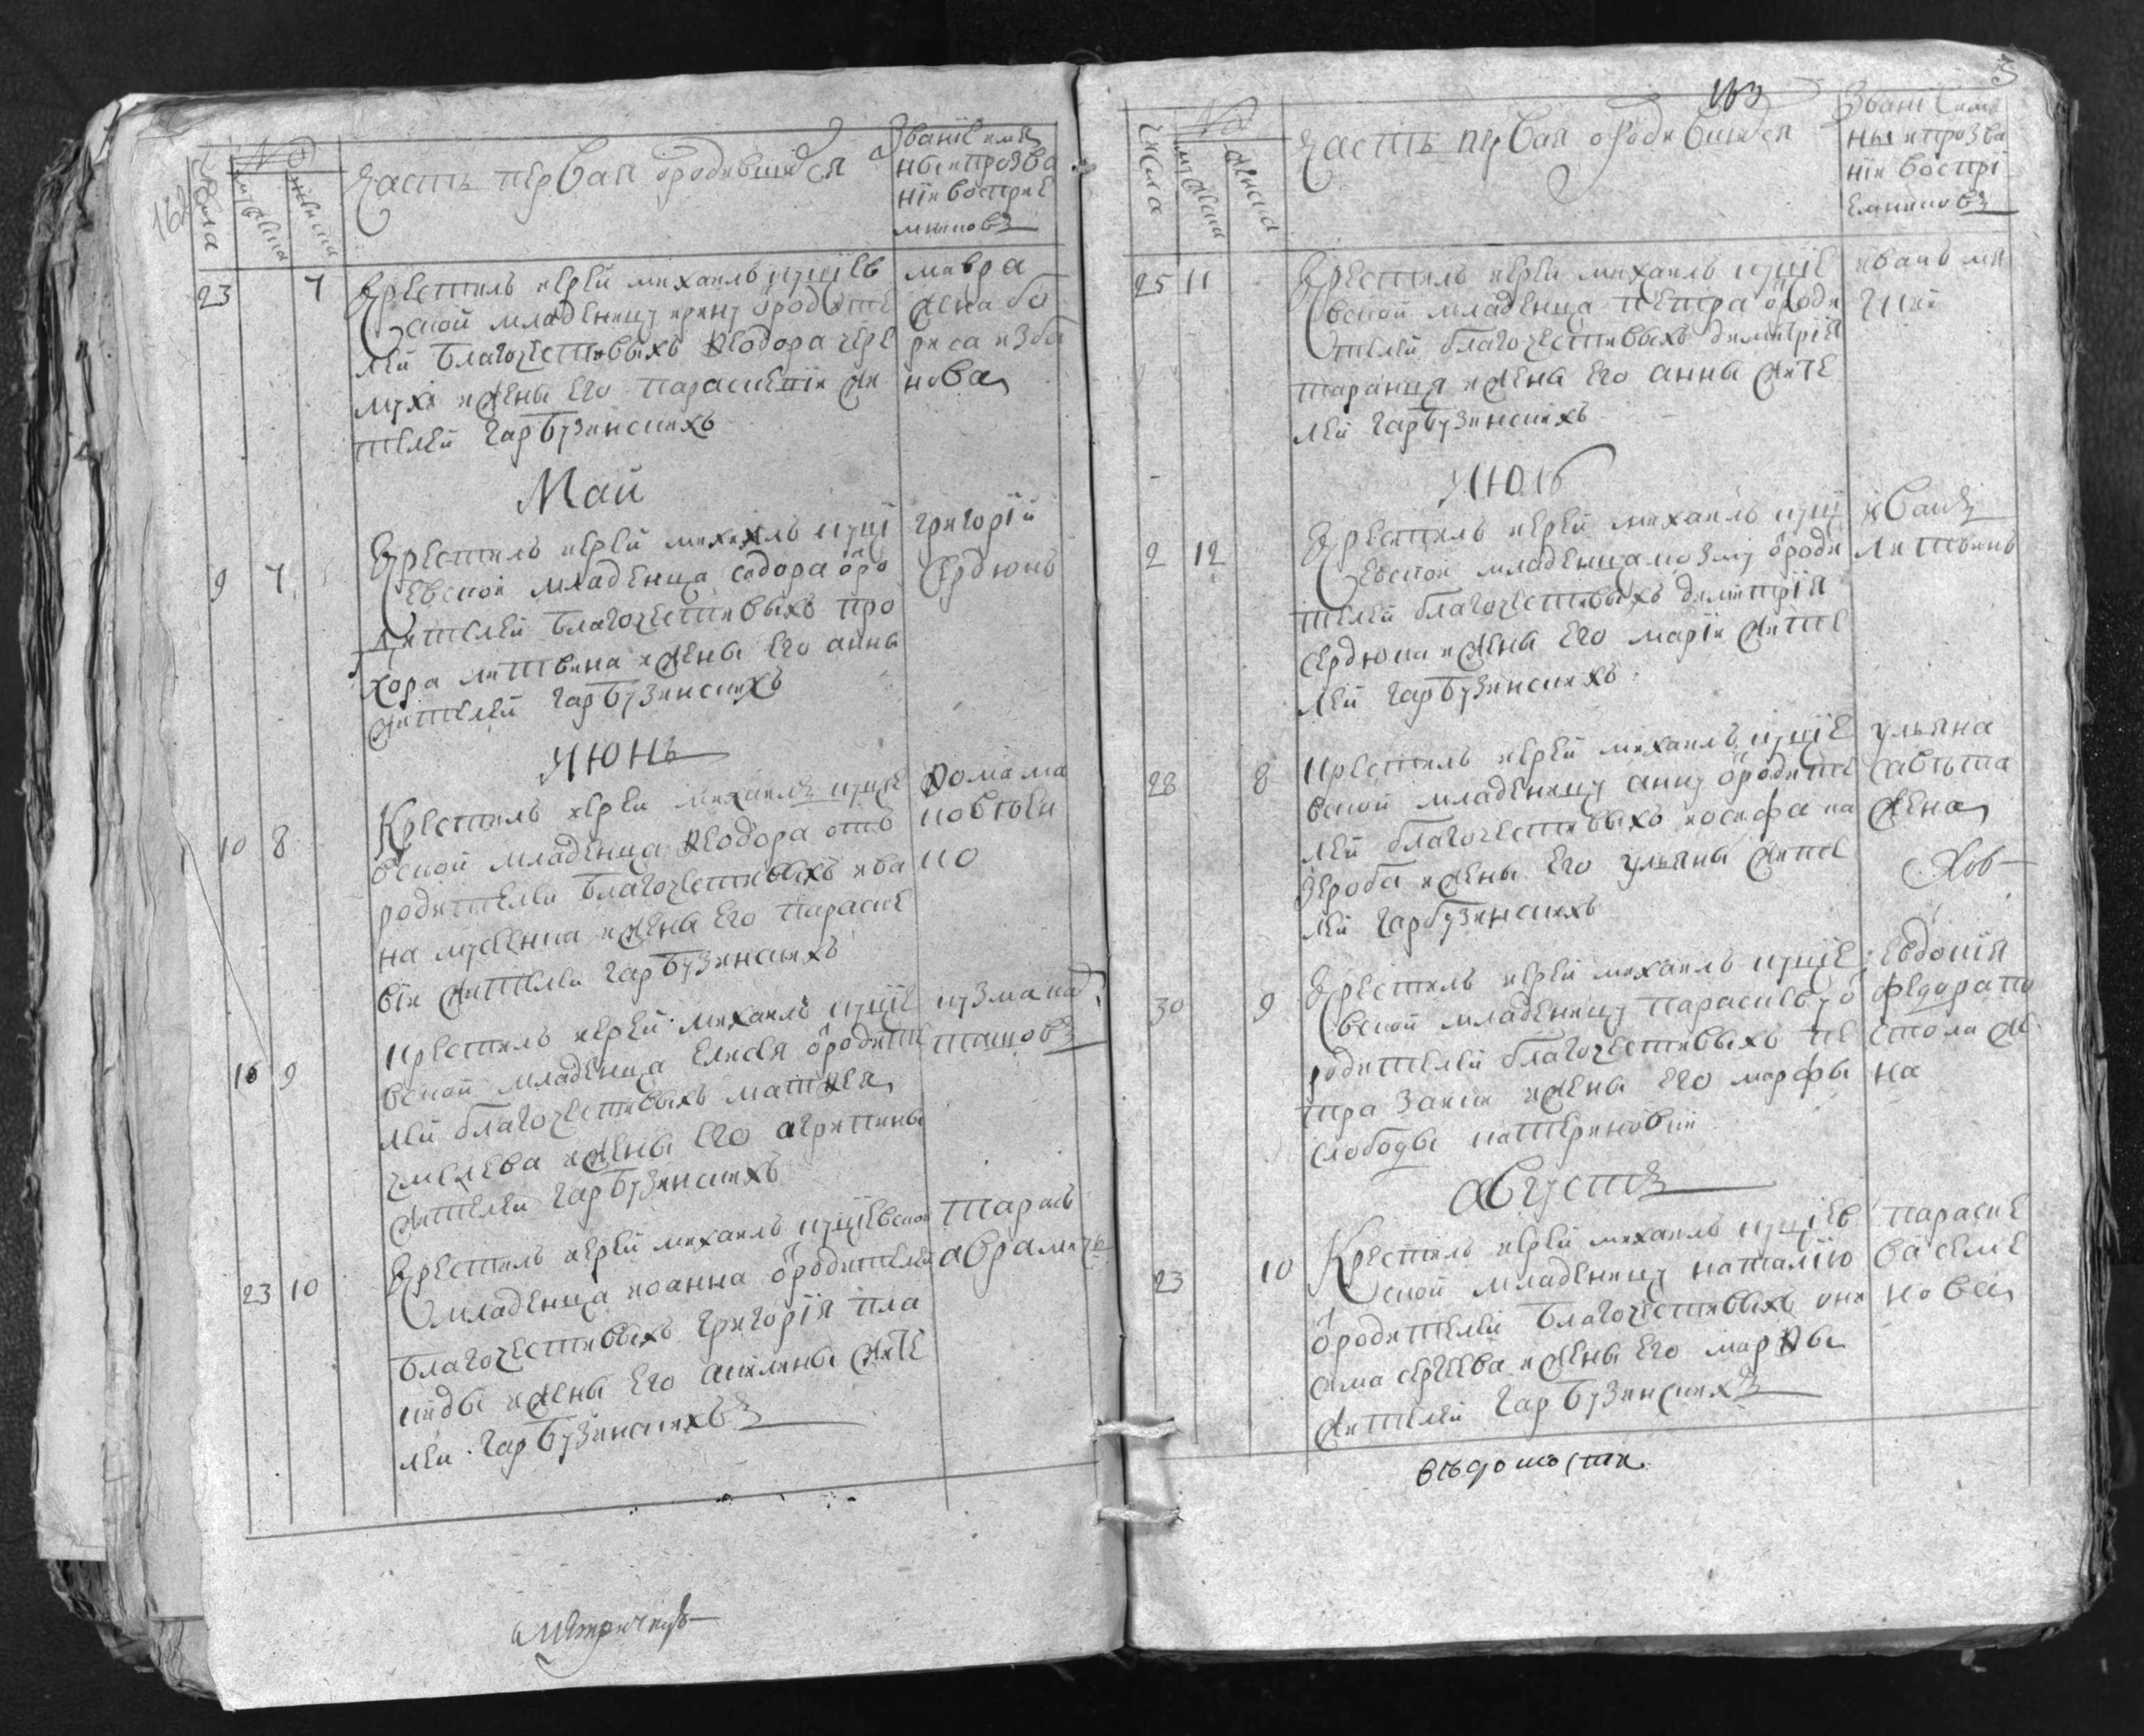 162
Числа
№
мужеска
женска
Часть первая ѡродившихся
Званіе имя
ны и прозва
ніе воспрїе
мниковъ
23 7
Крестилъ иерей михаилъ куцїев
ской младеницу ирину ѿродите
лей благочестивыхъ ѳеодора чере
мухи ижены его параскевїи жи
телей гарбузинскихъ
мавра
жена бо
риса изба
нова
Май
9 7
Крестилъ иерей михаилъ куцї
евской младенца сидора ѿро
дителей благочестивыхъ про
хора литвина ижены его анны
жителей гарбузинскихъ
григорїй
сердюкъ
Июнь
10 8
Крестилъ иерей михаилъ куцїе
вской младенца ѳеодора отъ
родителей благочестивыхъ ива
на мусїенка ижены его параске
вїи жителей гарбузинскихъ
ѳома ма
ковїей
ко
16 9
Крестилъ иерей михаилъ куцїе
вской младенца елисея ѿродите
лей благочестивыхъ матѳея
чмелева ижены его агрипины
жителей гарбузинскихъ
кузма ка
ташовъ
23 10
Крестилъ иерей михаилъ куцїевской
младенца иоанна ѿродителей
благочестивыхъ григорїя пла
киды ижены его акилины жите
лей гарбузинскихъ
тарасъ
абрамичъ
метрическ
163
5
Числа
№
мужеска
женска
Часть первая ѡродившихся
Званіе име
ны и прозва
ніе воспрї
емниковъ
25 11
Крестилъ иерей михаилъ куцїе
вской младенца петра ѿроди
телей благочестивыхъ димитрїя
таранця ижены его анны жите
лей гарбузинскихъ
иванъ ми
гкїй
Июль
2 12
Крестилъ иерей михаилъ куцї
евской младенца козму ѿроди
телей благочестивыхъ димитрїя
сердюка ижены его марїи жите
лей гарбузинскихъ
иванъ
литвинъ
28 8
Крестилъ иерей михаилъ куцїе
вской младеницу анну ѿродите
лей благочестивыхъ иосифа ка
зероба ижены его ульяны жите
лей гарбузинскихъ
ульяна
савѣта
жена
30 9
Крестилъ иерей михаилъ куцїе
вской младеницу параскеву ѿ
родителей благочестивыхъ пе
тра заики ижены его марфы
слободы катериновки
евдокїя
федора по
стола же
на
Августъ
23 10
Крестилъ иерей михаилъ куцїев
ской младеницу наталїю
ѿродителей благочестивыхъ они
сима сергѣева ижены его марѳы
жителей гарбузинскихъ
параске
ва семе
нова
вѣдомости